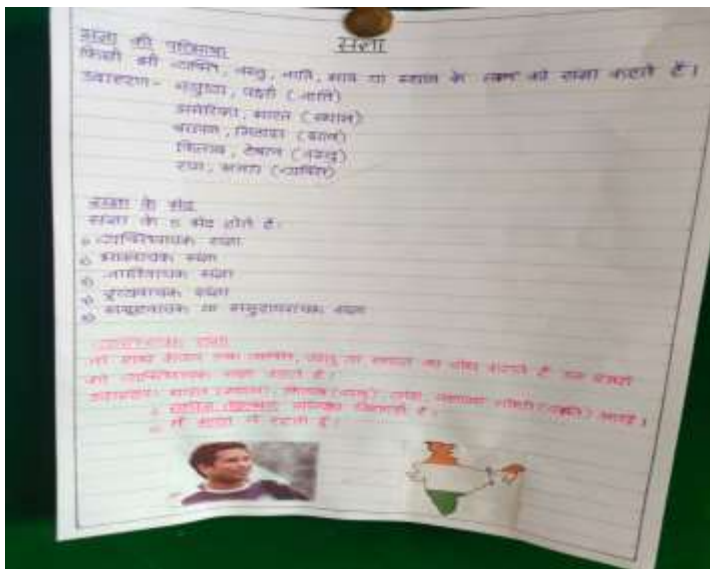 संज्ञा
संज्ञा की परिभाषा
किसी भी व्यक्ति, वस्तु, जाति, भाव या स्थान के नाम को संज्ञा कहते हैं।
उदाहरण- मनुष्य, पक्षी (जाति)
अमेरिका, भारत (स्थान)
बचपन, मिठास (भाव)
किताब, टेबल (वस्तु)
(व्यक्ति)
संज्ञा के भेद
संज्ञा के 5 भेद होते हैं-
व्यक्तिवाचक संज्ञा
भाववाचक संज्ञा
जातिवाचक संज्ञा
द्रव्यवाचक संज्ञा
समूहवाचक या समुदायवाचक संज्ञा
व्यक्तिवाचक संज्ञा
जो शब्द केवल एक व्यक्ति, वस्तु या स्थान का बोध कराते हैं उन शब्दों
को व्यक्तिवाचक संज्ञा कहते हैं।
उदाहरण- भारत (स्थान), किताब (वस्तु), महात्मा गाँधी (व्यक्ति) आदि।
सचिन तेंदुलकर क्रिकेट खिलाड़ी है।
मैं भारत में रहता हूँ।